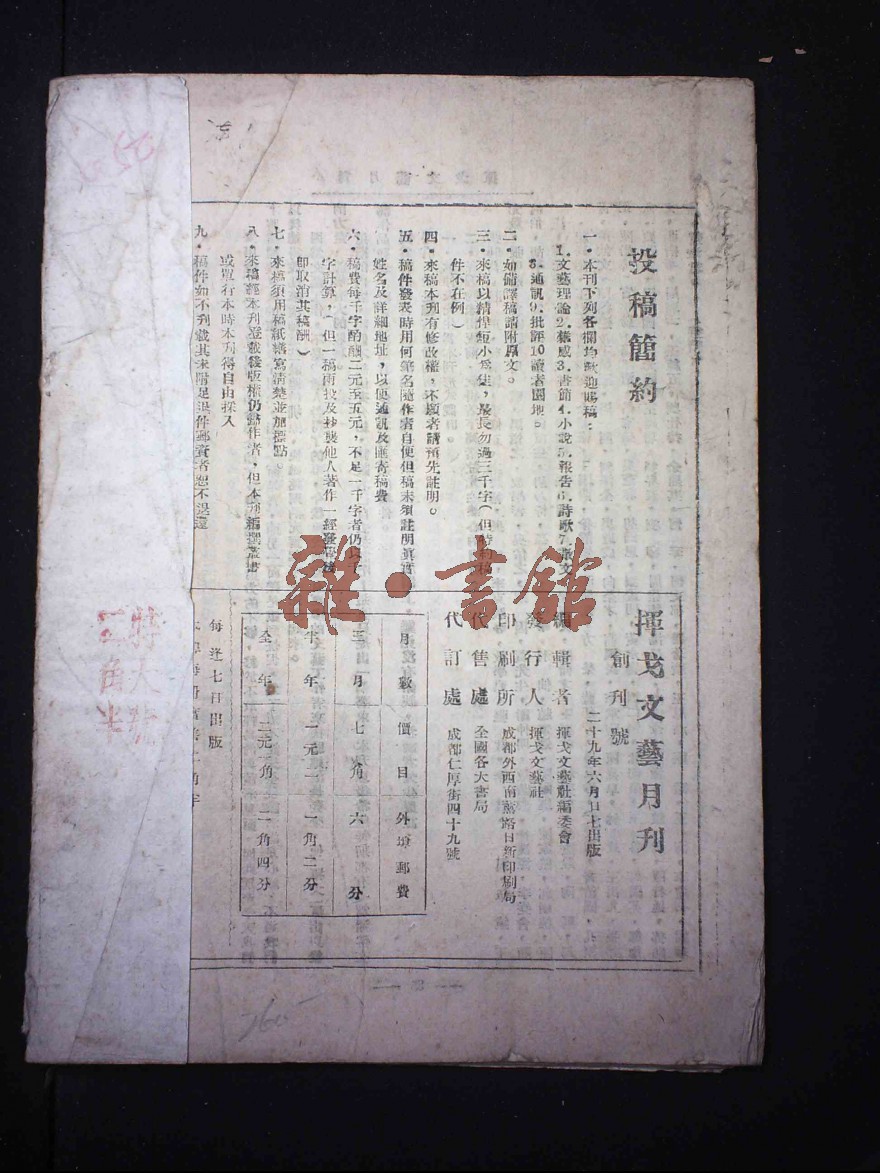 投稿簡約
一・本刊下列各欄均歡迎賜稿：
1.文藝理論2.雜感3.書簡4.小說5.報告6.詩歌7.散文
8.通訊9.批評10讀者園地。
二・如備譯稿請附原文。
三・來稿以精悍短小爲佳，最長勿過三千字（但特約稿
件不在例）
四・來稿本刊有修改權，不願者請預先註明。
五・稿件發表時用何筆名隨作者自便但稿末須註明眞實
姓名及詳細地址，以便通訊及匯寄稿費
六・稿費每千字酌酬二元至五元，不足一千字者仍以千
字計算，（但一稿兩投及抄襲他人著作一經發覺後
卽取消其稿酬）
七・來稿須用稿紙繕寫清楚並加標點
八・來稿經本刊登載後版權仍歸作者，但本刊編選叢書
或單行本時本刊得自由採入
九・稿件如不刊載其未附足退件郵資者恕不退還
揮戈文藝月刊
創刊號
二十九年六月七日出版
編輯者 揮戈文藝社編委會
發行人 揮戈文藝社
印刷所 成都外西南薰路日新印刷局
代售處 全國各大書局
代訂處 成都仁厚街四十九號
月數 價目 外埠郵費
三月 七角 六分
半年 一元二 一角二分
全年 二元一角 二角四分
每逢七日出版
特大號
二角半
雜・書館
760